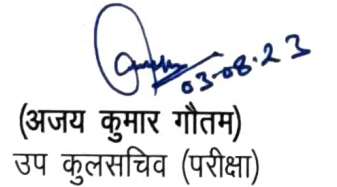 03-08-23
(अजय कुमार गौतम)
उप कुलसचिव (परीक्षा)